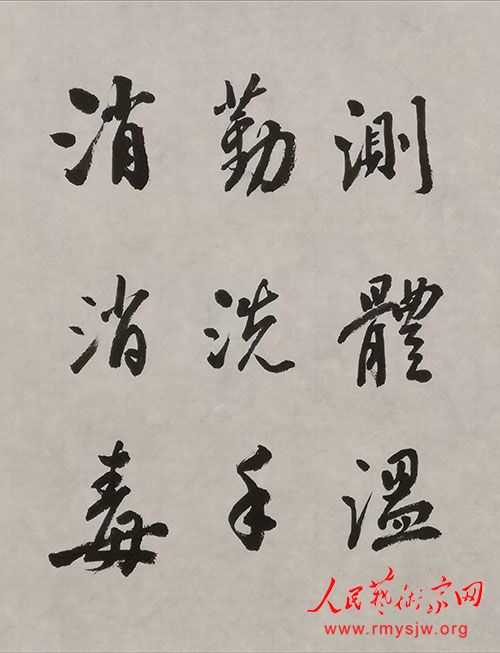 測體溫
勤洗手
消消毒
人民藝術家网
www.rmysjw.org